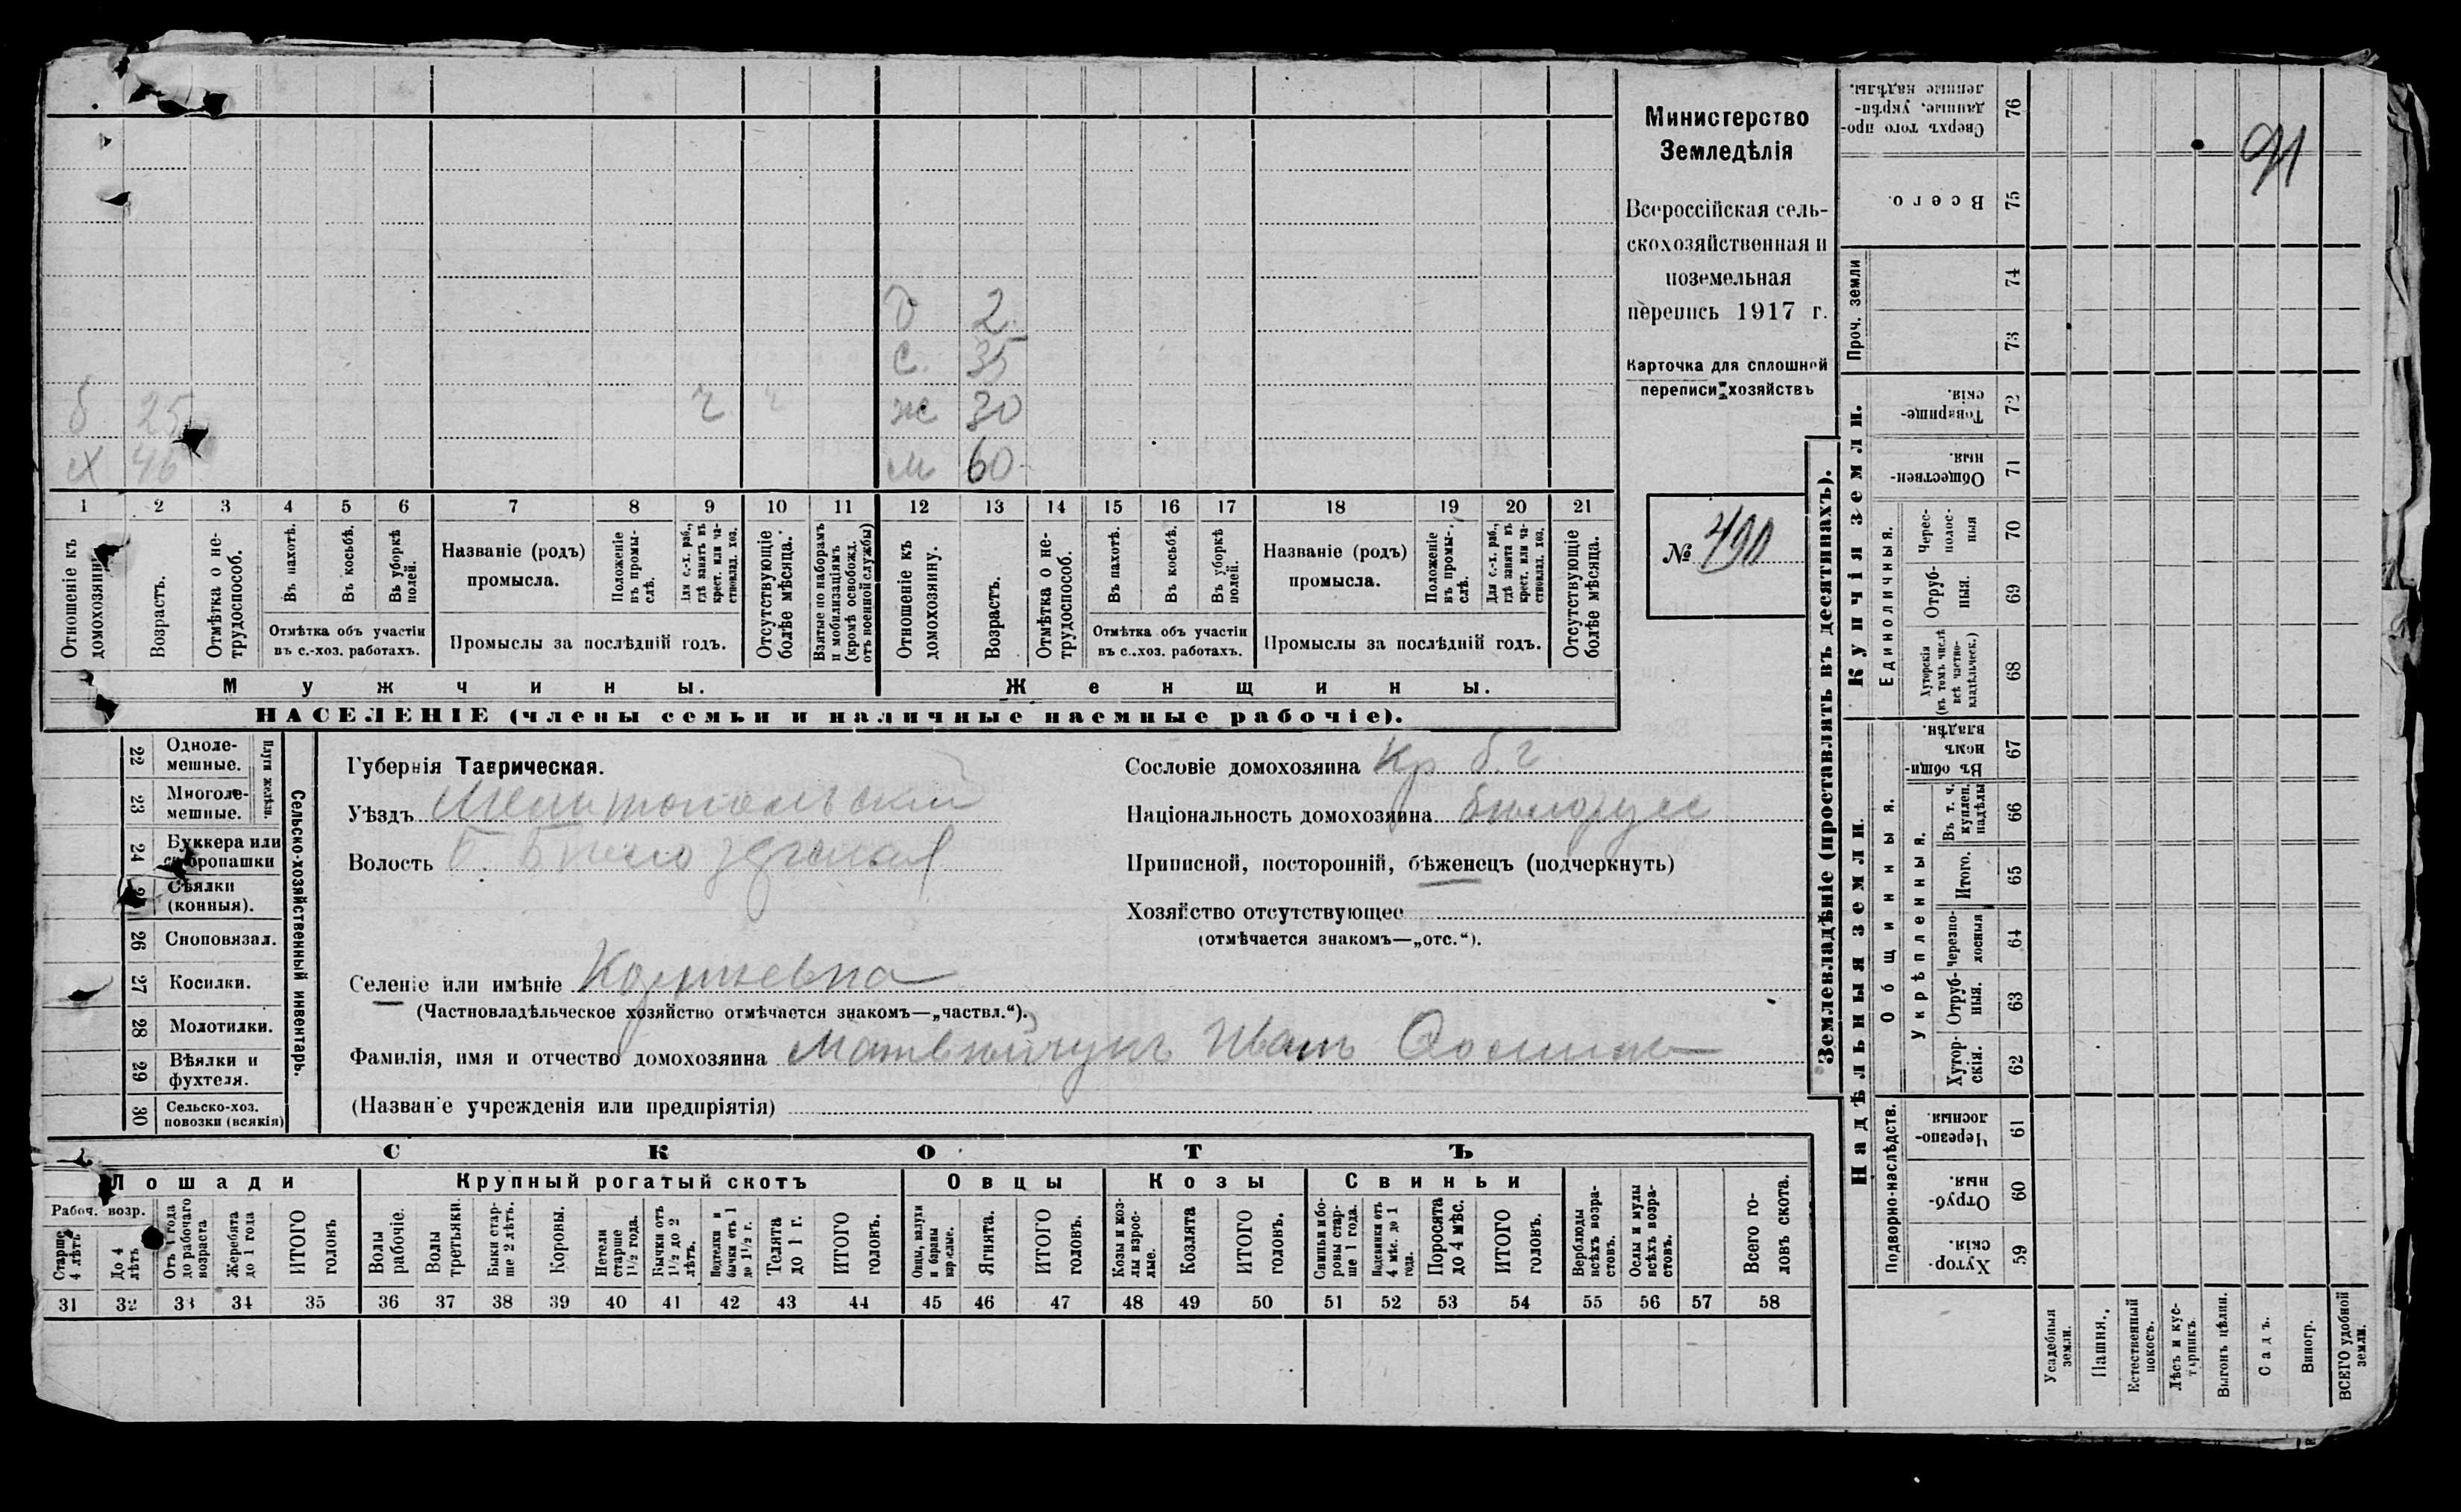 Министерство
Земледѣлія
Всероссійская сель-
скохозяйственная и
поземельная
перепись 1917 г.
Карточка для сплошной
переписи хозяйствъ
№ 490
91
д 2
с. 35
б 25 ж 30
х 46 м 60
1 2 3 4 5 6 7 8 9 10 11 12 13 14 15 16 17 18 19 20 21
Отношеніе къ домохозяину.
Возрастъ.
Отмѣтка о не-трудоспособ.
Въ пахотѣ.
Въ косьбѣ.
Въ уборкѣ полей.
Отмѣтка объ участіи
въ с.-хоз. работахъ.
Названіе (родъ)
промысла.
Положеніе въ промы-слѣ.
Для с.-х. раб., гдѣ занятъ въ крест. или ча-стновлад. хоз.
Промыслы за послѣдній годъ.
Отсутствующіе болѣе мѣсяца.
Взятые по наборамъ и мобилизаціямъ (кромѣ освобожд. отъ военной службы)
Отношеніе къ домохозяину.
Возрастъ.
Отмѣтка о не-трудоспособ.
Въ пахотѣ.
Въ косьбѣ.
Въ уборкѣ полей.
Отмѣтка объ участіи
въ с.-хоз. работахъ.
Названіе (родъ)
промысла.
Положеніе въ промы-слѣ.
Для с.-х. раб., гдѣ занята въ крест. или ча-стновлад. хоз.
Промыслы за послѣдній годъ.
Отсутствующіе болѣе мѣсяца.
Мужчины. Женщины.
НАСЕЛЕНІЕ (члены семьи и наличные наемные рабочіе).
Сельско-хозяйственный инвентарь.
Плуги желѣзн.
22 Одноле-мешные.
23 Многоле-мешные.
24 Буккера или скоропашки
25 Сѣялки (конныя).
26 Сноповязал.
27 Косилки.
28 Молотилки.
29 Вѣялки и фухтеля.
30 Сельско-хоз. повозки (всякія)
Губернія Таврическая.
Уѣздъ Мелитопольский
Волость Б. Белозерская
Селеніе или имѣніе
(Частновладѣльческое хозяйство отмѣчается знакомъ—„частвл.“).
Фамилія, имя и отчество домохозяина Матвейчукъ Иванъ
(Названіе учрежденія или предпріятія)
Сословіе домохозяина Кр б. г
Національность домохозяина белорусс
Приписной, посторонній, бѣженецъ (подчеркнуть)
Хозяйство отсутствующее
(отмѣчается знакомъ—„отс.“).
СКОТЪ
Лошади Крупный рогатый скотъ Овцы Козы Свиньи
Рабоч. возр.
Старше 4 лѣтъ
До 4 лѣтъ
Отъ 1 года до рабочаго возраста
Жеребята до 1 года
ИТОГО головъ
Волы рабочіе.
Волы третьяки.
Быки стар-ше 2 лѣтъ.
Коровы.
Нетели старше 1½ года.
Бычки отъ 1½ до 2 лѣтъ.
Подтелки и бычки отъ 1 до 1½ г.
Телята до 1 г.
ИТОГО головъ.
Овцы, валухи и бараны взрослые.
Ягнята.
ИТОГО головъ.
Козы и коз-лы взрос-лые.
Козлята
ИТОГО головъ.
Свиньи и бо-ровы стар-ше 1 года.
Подсвинки отъ 4 мѣс. до 1 года.
Поросята до 4 мѣс.
ИТОГО головъ.
Верблюды всѣхъ возра-стовъ.
Ослы и мулы всѣхъ возра-стовъ.
Всего го-ловъ скота.
31 32 33 34 35 36 37 38 39 40 41 42 43 44 45 46 47 48 49 50 51 52 53 54 55 56 57 58
Землевладѣніе (проставлять въ десятинахъ).
Надѣльныя земли.
Купчія земли.
Проч. земли
Подворно-наслѣдств.
Общинныя.
Укрѣпленныя.
Единоличныя.
Хутор-скія. 59
Отруб-ныя. 60
Черезпо-лосныя. 61
Хутор-скія. 62
Отруб-ныя. 63
Черезпо-лосныя 64
Итого. 65
Въ т. ч. куплен. надѣлы 66
Въ общи-номъ владѣн. 67
Хуторскія (въ томъ числѣ всѣ частно-владѣльческ.) 68
Отруб-ныя. 69
Черес-полос-ныя 70
Обществен-ныя. 71
Товарище-скія. 72
73
74
Всего. 75
Сверхъ того про-данные, укрѣп-ленные надѣлы. 76
Усадебныя земли.
Пашня.
Естественный покосъ.
Лѣсъ и кус-тарникъ.
Выгонъ цѣлин.
Садъ.
Виногр.
ВСЕГО удобной земли.